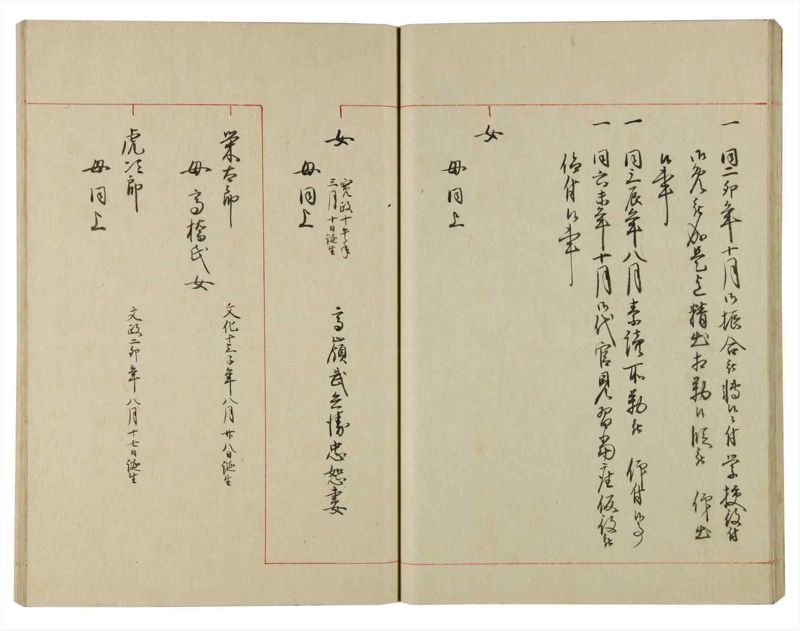 一 同二卯年十月御振合を以
学校役付
御免被加是迄精出相勤候段被 仰出
候事
一 同三辰年八月素読所勤被 仰付候事
一 同六未年十月御代官見習当座仮役被
仰付候事
女
母同上
女
寛政十午年
三月十日誕生
母同上
高嶺武兵衛忠恕妻
栄太郎
文化十三子年八月廿八日誕生
母高橋氏女
虎次郎
文政二卯年八月十七日誕生
母同上